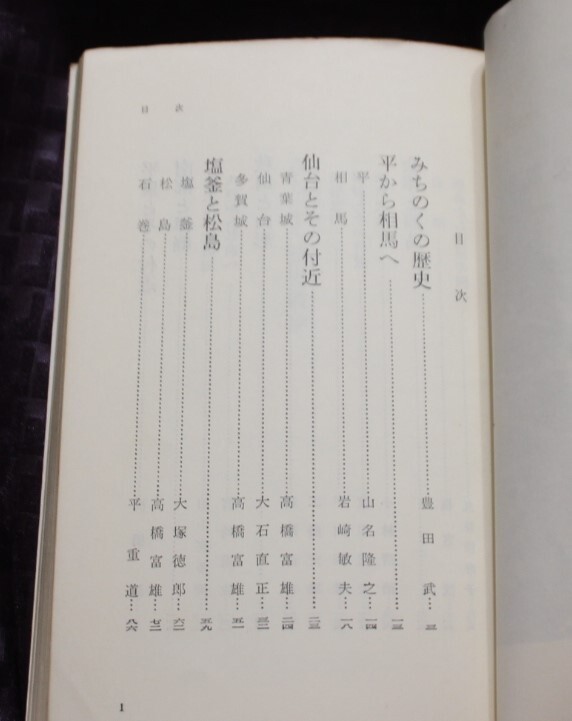 目次
目次
みちのくの歴史……豊田武……三
平から相馬へ……一三
平……山名隆之……一四
相馬……岩崎敏夫……一八
仙台とその付近……二三
青葉城……高橋富雄……二四
仙台……大石直正……三二
多賀城……高橋富雄……五一
塩釜と松島……五九
塩釜……大塚徳郎……六二
松島……高橋富雄……七二
石巻……平重道……八六
1